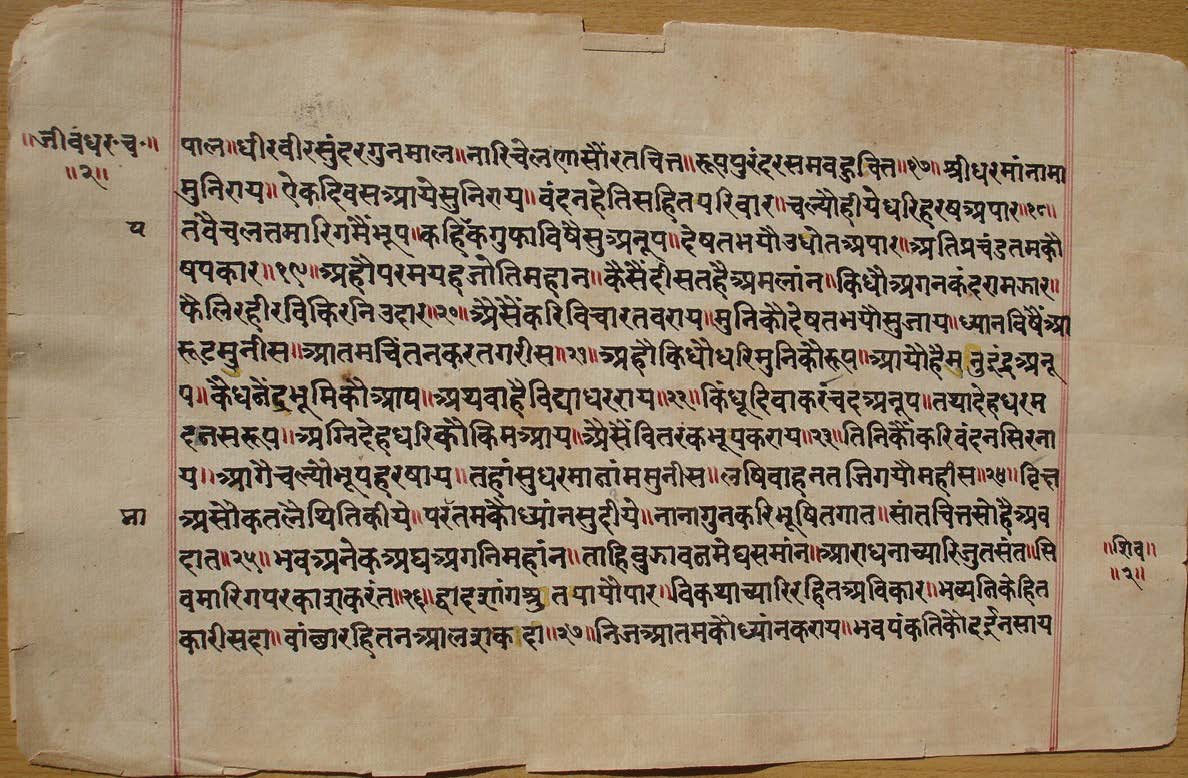 ॥जीवंधर॰च॰॥
॥२॥
पाल॥धीरवीरसुंदरगुनमाल॥नारिचेलणासौंरतचित्त॥रूपपुरंदरसमवहुवित॥१७॥श्रीधरमांनामा
मुनिराय॥ऐकदिवसआयेसुनिराय॥वंदनहेतिसहितपरिवार॥चल्यौहीयेधरिहरषअपार॥१८॥
तवैचलतमारिगमैंभूप॥कहिंकगुफाविषैसुअनूप॥देषतभयौउधोतअपार॥अतिप्रचंडतमकौ
य
षपकार॥१९॥अहौपरमयहजोतिमहान॥कैसैंदीसतहैअमलांन॥किधौअगनकंदरामझार॥
फैलिरहीरविकिरनिउहार॥२०॥अैसैंकरिविचारतवराय॥मुनिकौदेषतभयौसुजाय॥ध्यानविषैंआ
रूटमुनीस॥आतमचिंतनकरतगरीस॥२१॥अहौकिधौधरिमुनिकौरूप॥आयौहैसुनुइंद्रअनू
प॥कैधनेंद्रभूमिकौआप॥अथवाहैविद्याधरराय॥२२॥किंधूदिवाकरचंदअनूप॥तथादेहधरम
दनसरूप॥अग्निदेहधरिकौकिमआय॥अैसैंवितरकभूपकराय॥२३॥तिनिकौंकरिवंदनसिरना
य॥आगैचल्यौभूपहरषाय॥तहांसुधरमानाममुनीस॥लषिवाहनतजिगयौमहीस॥२४॥वित्त
असौकतलैथितिकीये॥परॅतमकौध्यांनसुदीये॥नानागुनकरिभूषितगात॥सांतचित्तसोहैअव
मा
दात॥२५॥भवअनेकअघअगनिमहांन॥ताहिवुझावनमेघसमांन॥आराधनाच्यारिजुतसंत॥सि
वमारिगपरकाशकरंत॥२६॥द्वादशांगश्रुतपायौपार॥विकथाच्यारिरहितअविकार॥भव्यनिकेहित
कारीसदा॥वांछारहितनआलशकदा॥२७॥निजआतमकौध्यांनकराय॥भवपंकतिकौदईनसाय
॥शिव॥
॥२॥